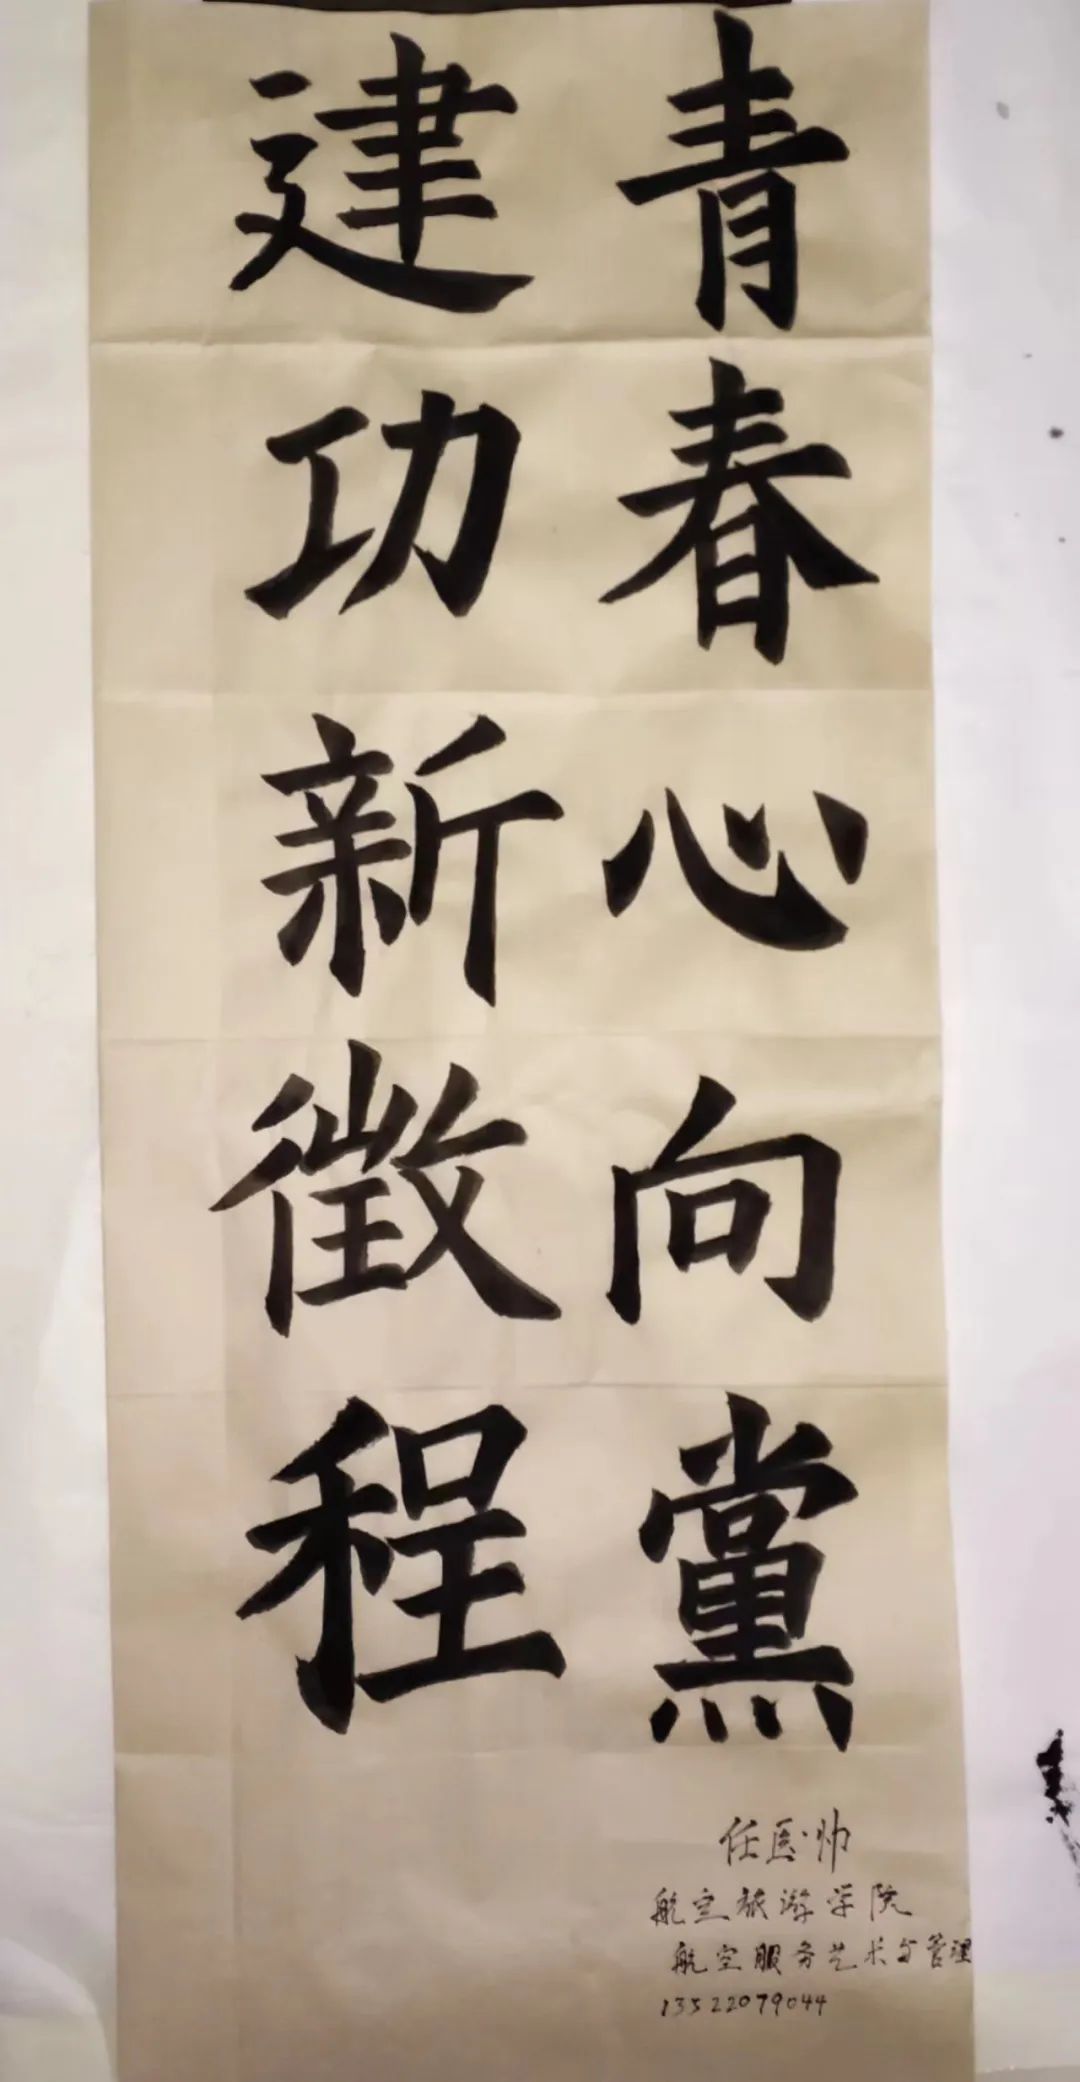 青春心向黨
建功新徵程
任医帅
航空旅游学院
航空服务艺术与管理
13522079044